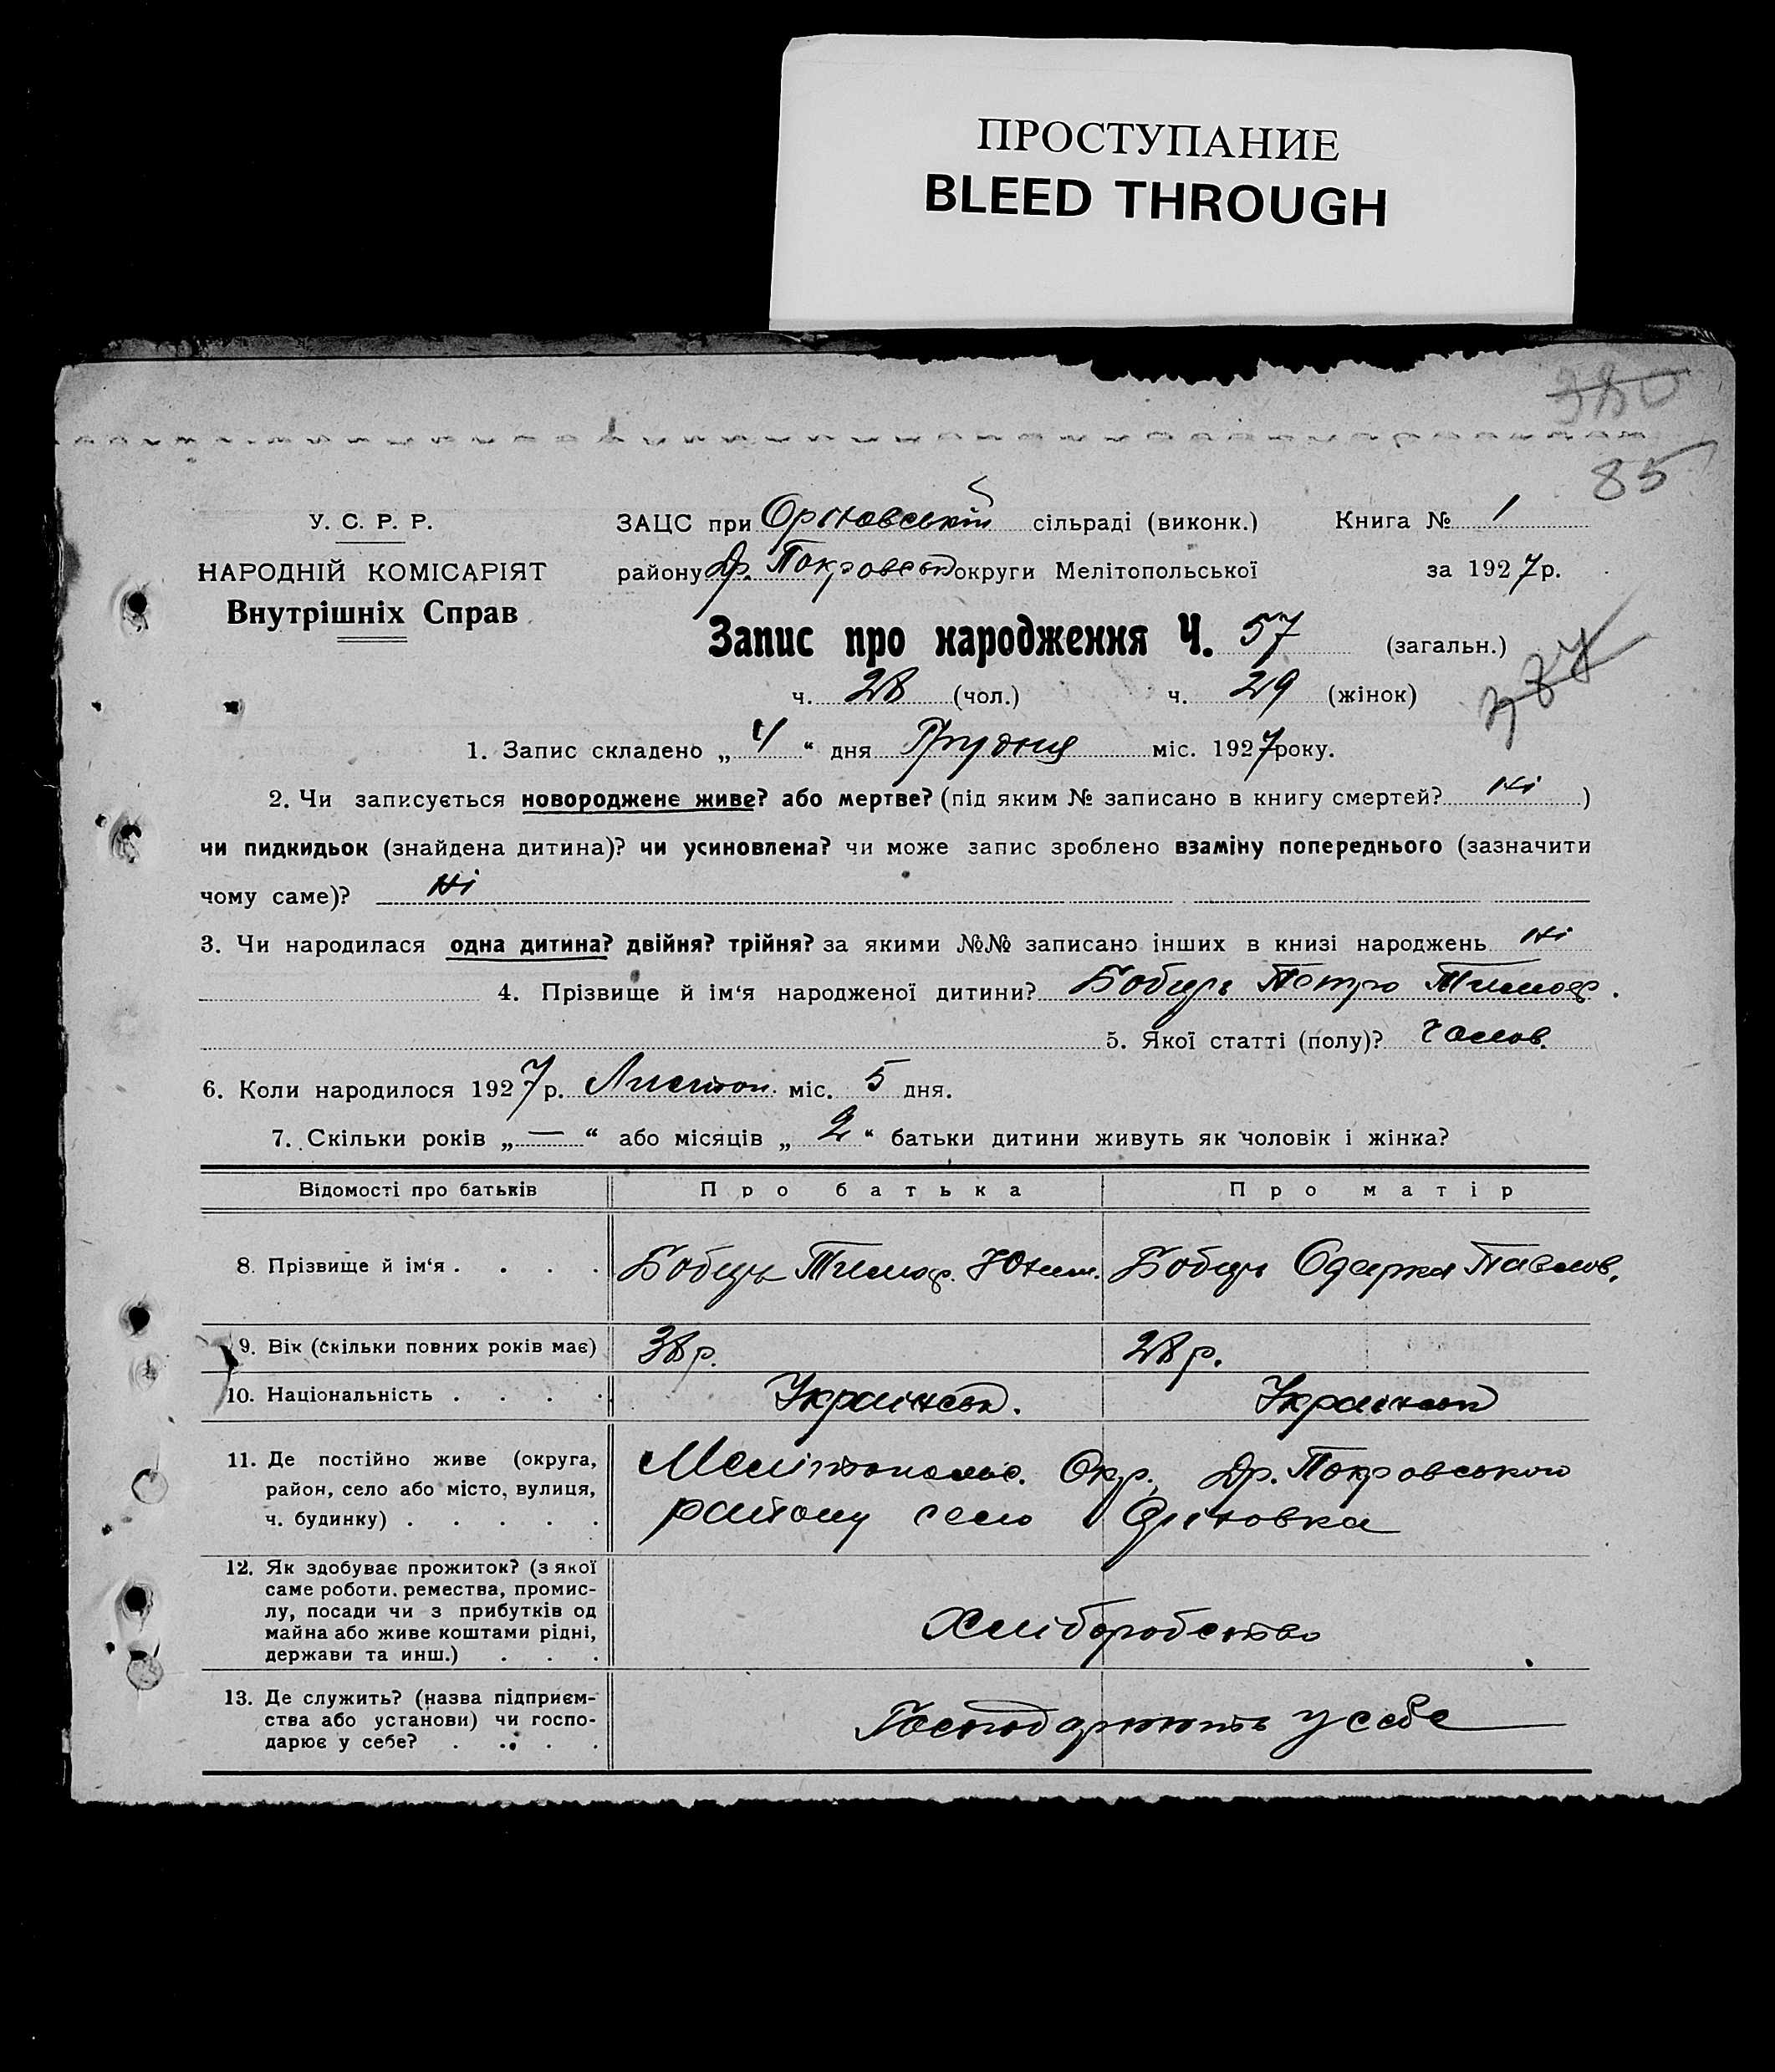 ПРОСТУПАНИЕ
BLEED THROUGH
380
85
У. С. Р. Р.
НАРОДНІЙ КОМІСАРІЯТ
Внутрішніх Справ
ЗАЦС при сільраді (виконк.) Книга № 1
району Др. Покровськ округи Мелітопольської за 1927 р.
Запис про народження Ч. 57 (загальн.)
ч. 28 (чол.) ч. 29 (жінок)
1. Запис складено „ 4 “ дня Грудня міс. 1927 року.
2. Чи записується новороджене живе? або мертве? (під яким № записано в книгу смертей? Ні )
чи пидкидьок (знайдена дитина)? чи усиновлена? чи може запис зроблено взаміну попереднього (зазначити
чому саме)? Ні
3. Чи народилася одна дитина? двійня? трійня? за якими №№ записано інших в книзі народжень Ні
4. Прізвище й ім‘я народженої дитини? Бобирь Петро Тимоф.
5. Якої статті (полу)? Чолов.
6. Коли народилося 1927 р. Листоп. міс. 5 дня.
7. Скільки років „ — “ або місяців „ 2 “ батьки дитини живуть як чоловік і жінка?
Відомості про батьків Про батька Про матір
8. Прізвище й ім‘я . . . . Бобирь Тимоф. Бобирь Одарка Павлов.
9. Вік (скільки повних років має) 38 р. 28 р.
10. Національність . . . . Українськ. Українськ
11. Де постійно живе (округа,
район, село або місто, вулиця,
ч. будинку) . . . . .
Мелітопольс. Окр. Др. Покровського
району село
12. Як здобуває прожиток? (з якої
саме роботи, ремества, промис-
лу, посади чи з прибутків од
майна або живе коштами рідні,
держави та инш.) . . .
Хліборобство
13. Де служить? (назва підприєм-
ства або установи) чи госпо-
дарює у себе? . . . .
Господарюють у себе